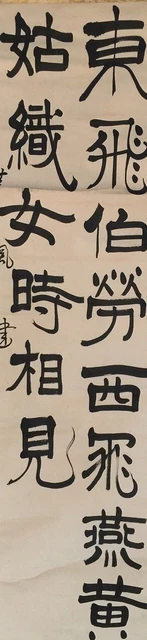 東飛伯勞西飛燕黄
姑織女時相見